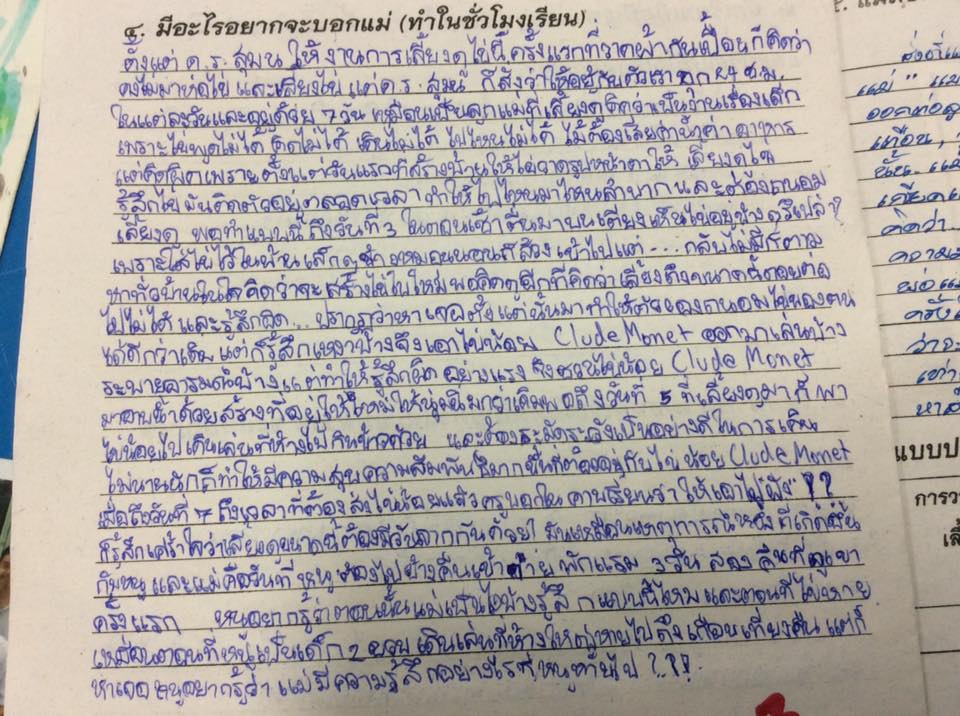 ๔. มีอะไรอยากจะบอกแม่ (ทำในชั่วโมงเรียน)
ตั้งแต่ ค.ร. สุมน ให้งานการเลี้ยงดูไข่นี้ครั้งแรกที่วาดหน้ากันเปื้อนก็คิดว่า
คงไม่มาห่อไข่ และเลี้ยงไข่ แต่ ค.ร. สุมน ก็สั่งว่าให้อยู่กับตัวเรา ตก 24 ช.ม.
ในแต่ละวันและอยู่ด้วย 7 วัน เหมือนเป็นลูกแม่ที่เลี้ยงดูคิดว่าเป็นงานเรื่องเล็ก
เพราะไข่พูดไม่ได้ คิดไม่ได้ เดินไม่ได้ ไปไหนไม่ได้ ไม่ต้องเสียค่าน้ำค่า อาหาร
แต่คิดผิดเพราะตั้งแต่วันแรกที่สร้างบ้านให้ไข่วาดรูปหน้าตาให้ เลี้ยงดูไข่
รู้สึกไข่มันติดตัวอยู่ตลอดเวลา ทำให้ไปไหนมาไหนลำบากและต้องถนอม
เลี้ยงดู พอทำแบบนี้ถึงวันที่ 3 ในตอนเช้าตื่นมาบนเตียงเห็นไข่อยู่ข้าง ๆ รึเปล่า?
เพราะใส่ไข่ไว้ในบ้านเล็กๆข้างหมอนนอนก็ล้วงเข้าไปแต่.... กลับไม่มีก็ตาม
หาทั่วบ้านในใจคิดว่าจะสร้างไข่ใบใหม่พอคิดดูอีกทีคิดว่าเลี้ยงถึงขนาดนี้ถอยต่อ
ไปไม่ได้ และรู้สึกผิด... ปรากฎว่าหาเจอตั้งแต่นั้นมาทำให้ต้องถนอมไข่ของตน
ได้ดีกว่าเดิม แต่ก็รู้สึกเหงาบ้างจึงเอาไข่น้อย Clude Monet ออกมาเล่นบ้าง
ระบายอารมณ์บ้าง แต่ทำให้รู้สึกผิด อย่างแรง จึงชวนไข่น้อย Clude Monet
มาอาบน้ำด้วยสร้างที่อยู่ให้ใหม่ให้นุ่มนิ่มกว่าเดิมพอถึงวันที่ 5 ที่เลี้ยงดูมาก็พา
ไข่น้อยไปเดินเล่นที่ห้างไปกินข้าวด้วย และต้องระมัดระวังเป็นอย่างดีในการเดิน
ไม่นานนักก็ทำให้มีความสุขความสัมพันธ์มากขึ้นที่ต้องอยู่กับไข่น้อย Clude Monet
เมื่อถึงวันที่ 7 ถึงเวลาที่ต้องส่งไข่น้อยแล้วครูบอกในคาบเรียนว่า ให้เอาไปฝัง"??
ก็รู้สึกเศร้าใจว่าเลี้ยงดูขนาดนี้ต้องมีวันจากกันด้วย? มันเหมือนเหตุการณ์หนึ่งที่เกิดขึ้น
กับหนู และแม่คือวันที่ หนู ต้องไปค้างคืนเข้าค่าย พักแรม 3 วัน สอง คืนที่ภูเขา
ครั้งแรก หนูอยากรู้ว่าตอนนั้นแม่เป็นไงบ้างรู้สึกแบบนี้ไหม และตอนที่ไข่หาย
เหมือนตอนที่หนูเป็นเด็ก 2 ขวบ เดินเล่นที่ห้างใหญ่หายไปถึงเกือบเที่ยงคืน แต่ก็
หาเจอ หนูอยากรู้ว่า แม่มีความรู้สึกอย่างไรที่หนูหายไป ?.??.
แม่"
เตือน,
คิดว่า.
ความ
พ่อแม่
ว่าจะ
แบบป
การว
เลี้